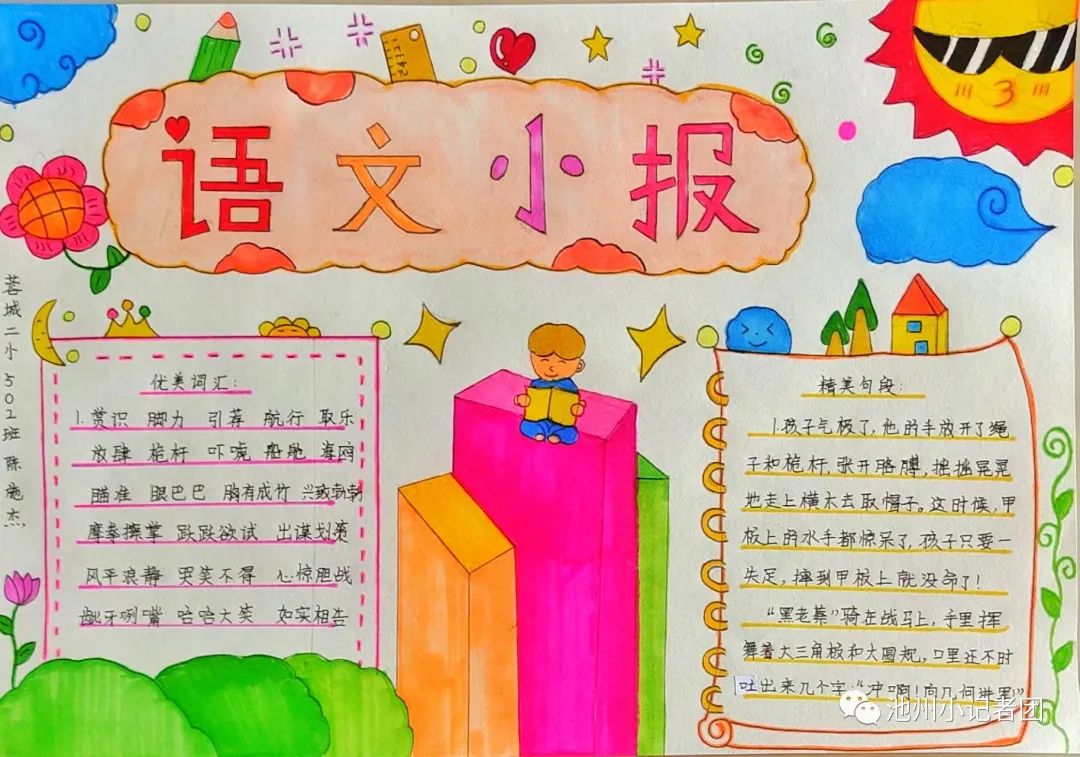 语文小报
菩城二小 502班 陈施杰
优美词汇:
1.赏识 脚力 引荐 航行 取乐
放肆 桅杆 吓唬 船舱 海鸥
瞄准 眼巴巴 胸有成竹 兴致勃勃
摩拳擦掌 跃跃欲试 出谋划策
风平浪静 哭笑不得 心惊胆战
龇牙咧嘴 哈哈大笑 如实相告
精美句段:
1.孩子气极了,他的手放开了绳
子和桅杆,张开胳膊,摇摇晃晃
地走上横木去取帽子。这时候,甲
板上的水手都惊呆了,孩子只要一
失足,摔到甲板上就没命了!
“黑老蔡”骑在战马上,手里挥
舞着大三角板和大圆规,口里还不时
吐出来几个字:“冲啊!向几何进军”
池州小记者团